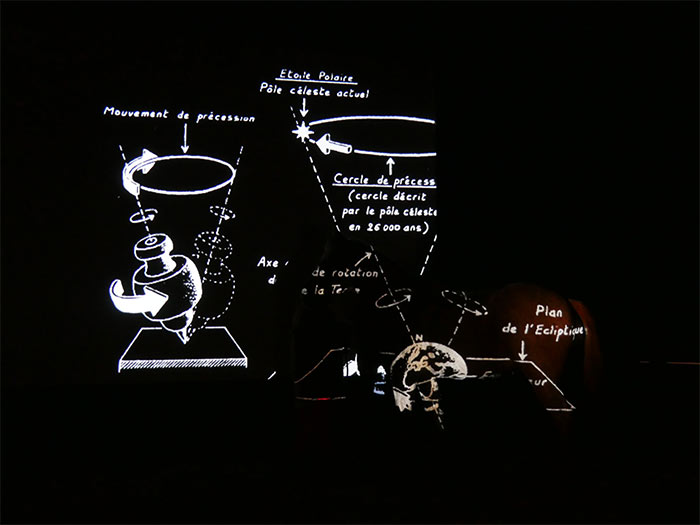 Mouvement de précession
Etoile Polaire
Pôle céleste actuel
Cercle de précess
(cercle décrit
par le pôle céleste
en 26 000 ans)
Axe de rotation
de la Terre
Plan
de l'Ecliptique
N